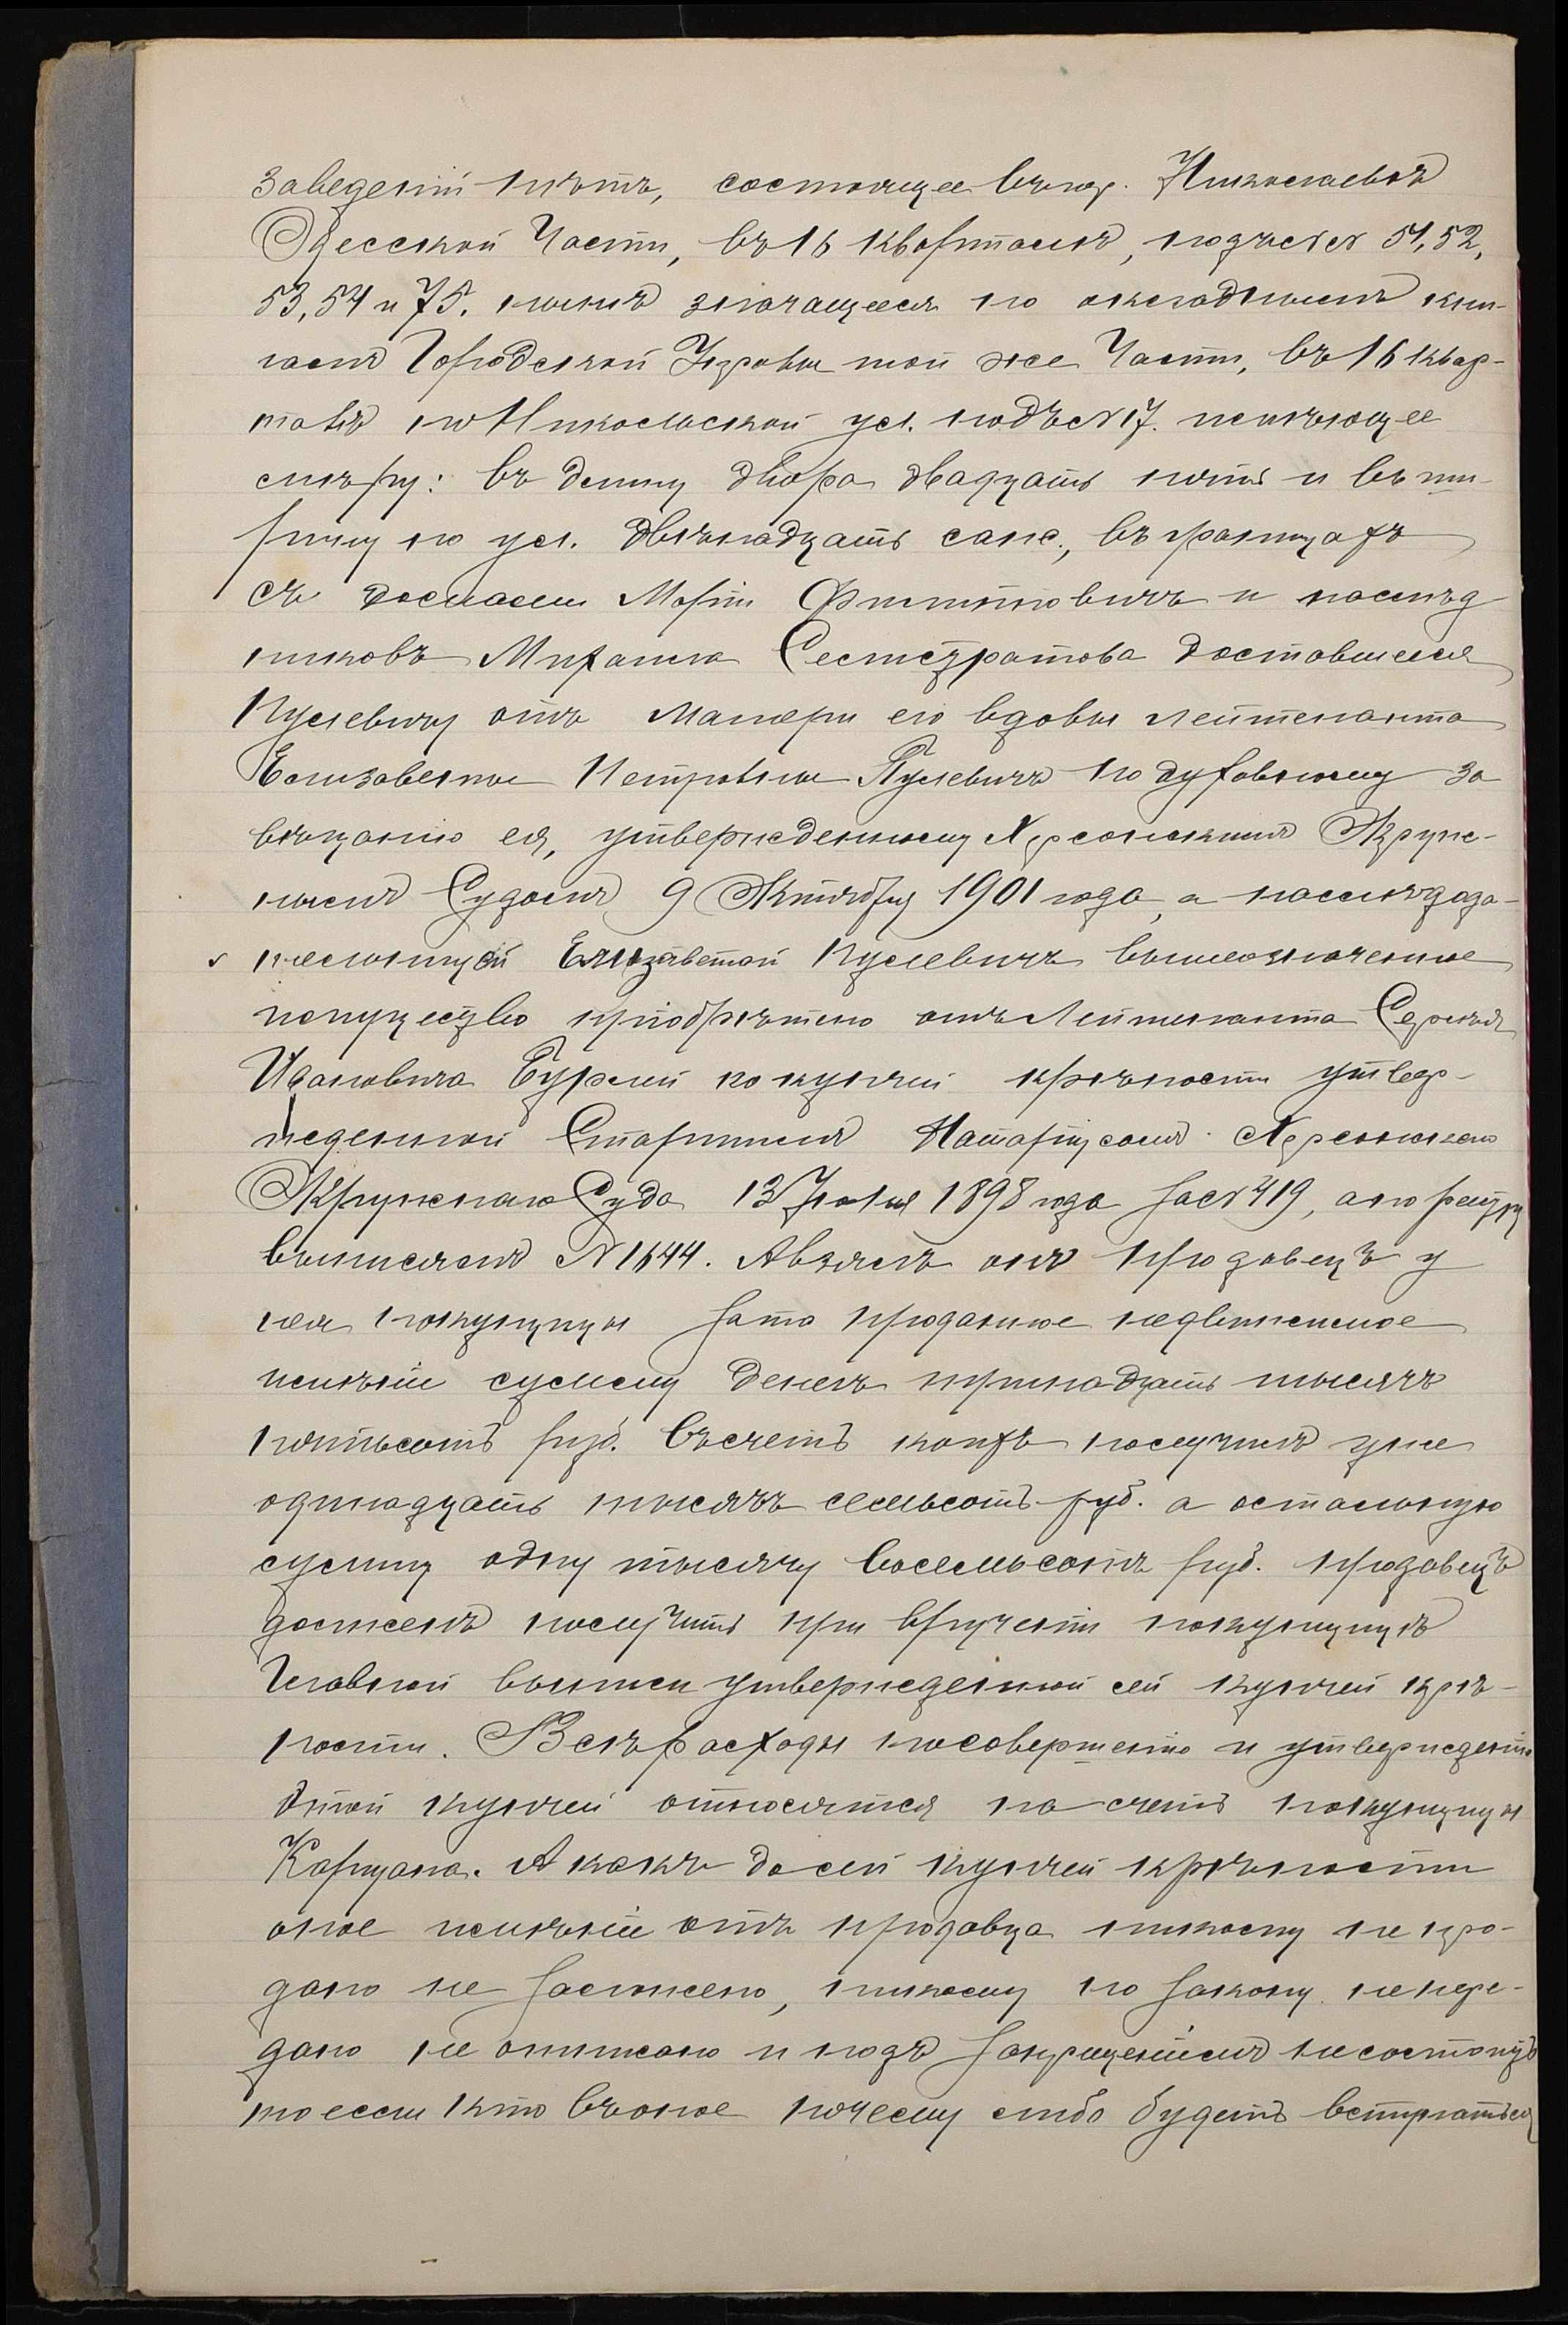 заведеній нѣтъ, состоящее въ гор. Николаевѣ
Одесской Части, въ 16 кварталѣ, подъ №№ 51, 52,
53, 54 и 75. нынѣ значащееся по окладнымъ кни-
гамъ Городской Управы той же Части, въ 16 квар-
талѣ по Никольской ул. подъ № 17. имѣющее
мѣру: въ длину двора двадцать пять и въ ши-
рину по ул. двѣнадцать саж., въ границахъ
съ домами Маріи Филипповичъ и наслѣд
никовъ Михаила Селистратова доставшееся
Пулевичу отъ матери его вдовы лейтенанта
Елизаветы Петровны Пулевичъ по духовному за
вѣщанію ея, утвержденному Херсонскимъ Окруж-
нымъ Судомъ 9 Октября 1901 года, а наслѣдода-
тельницей Елизаветой Пулевичъ вышеозначенное
имущество пріобрѣтено отъ Лейтенанта Сергѣя
Ивановича Бурлей по купчей крѣпости утвер-
жденной Старшимъ Нотаріусомъ Херсонскаго
Окружнаго Суда 13 Іюля 1898 года за № 419, а по реестру
выписямъ № 1644. А взялъ онъ продавецъ у
нея покупщицы за то проданное недвижимое
имѣніе сумму денегъ тринадцать тысячъ
пятьсотъ руб. въ счетъ коихъ получилъ уже
одинадцать тысячъ семьсотъ руб. а остальную
сумму одну тысячу восемьсотъ руб. продавецъ
долженъ получить при врученіи покупщицѣ
Главной выписи утвержденной сей купчей крѣ-
пости. Всѣ расходы по совершенію и утвержденію
этой купчей относятся на счетъ покупщицы
Карпуана. А какъ до сей купчей крѣпости
оное имѣніе отъ продавца никому не про-
дано не заложено, никому по закону не пере-
дано не описано и подъ запрещеніемъ не состоитъ
то если кто въ оное почему либо будетъ вступаться